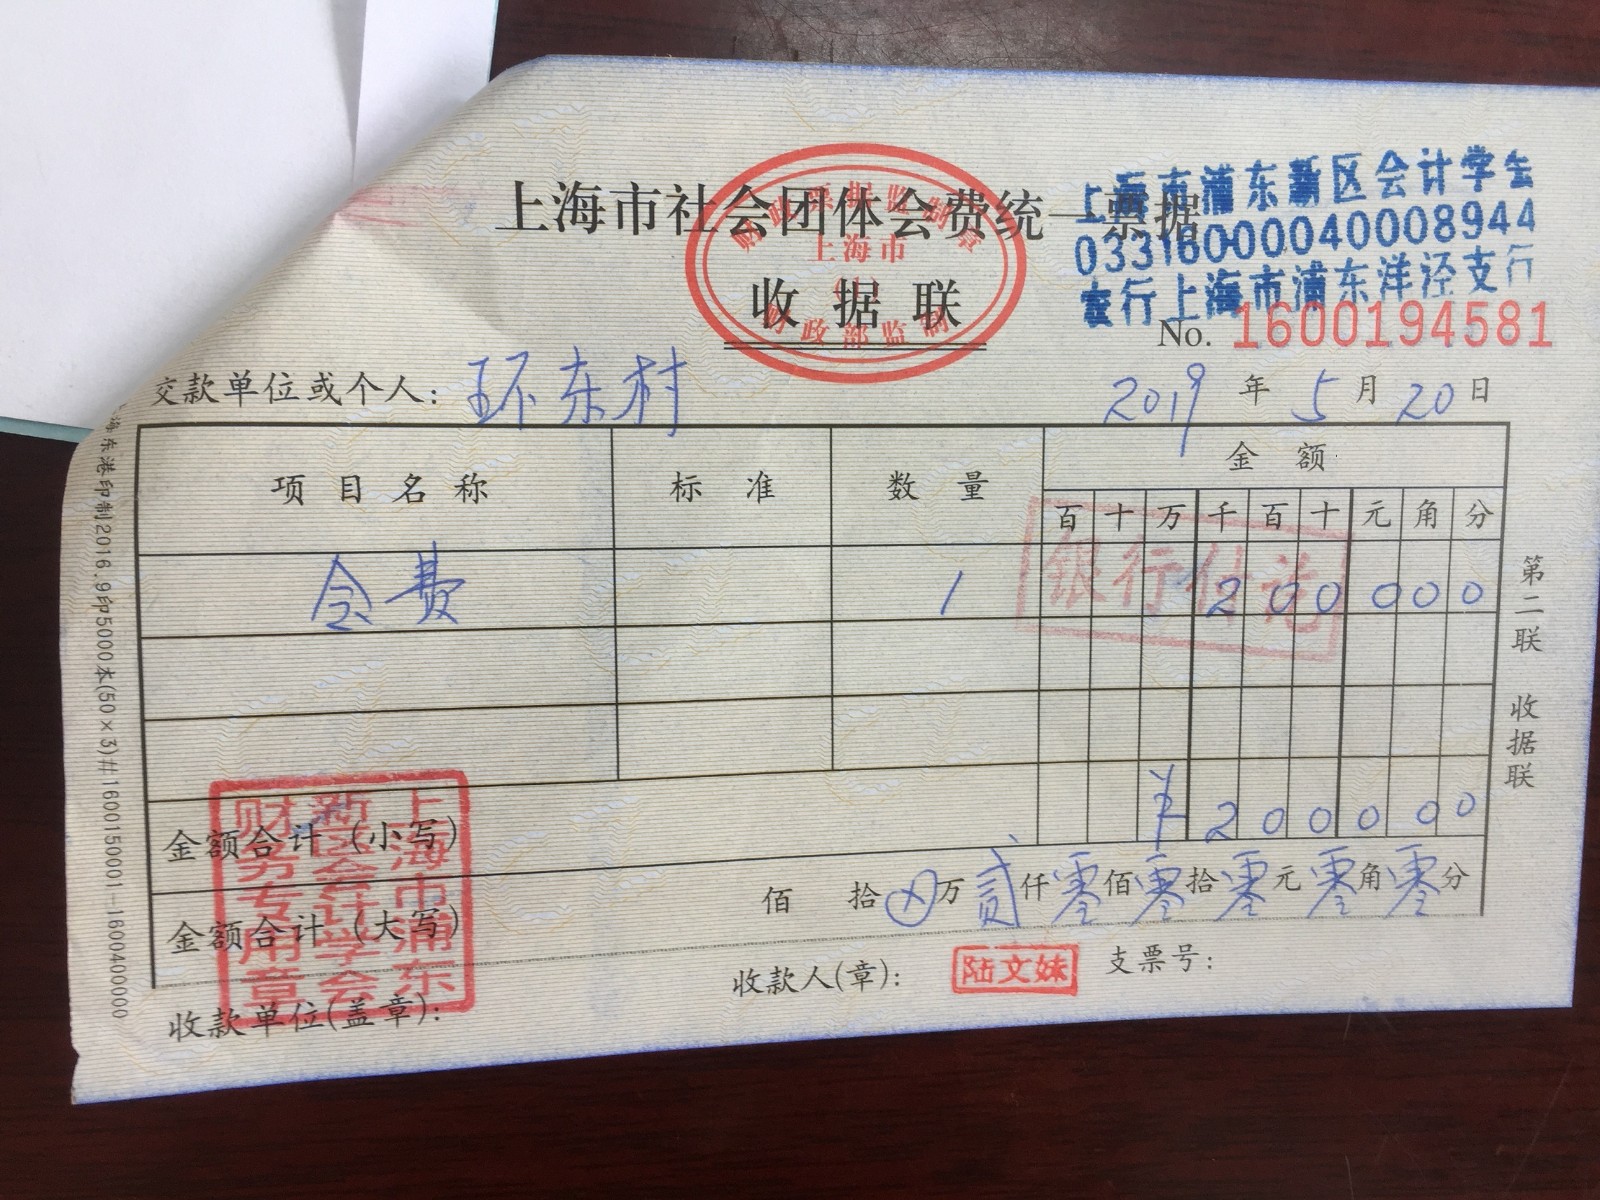 上海市社会团体会费统一票据
收据联
财政票据监制章
上海市
财政部监制
上海市浦东新区会计学会
03316000040008944
农行上海市浦东洋泾支行
No. 1600194581
交款单位或个人：环东村
2019 年 5 月 20 日
项目名称 标准 数量 金额
百 十 万 千 百 十 元 角 分
会费 1 2 0 0 0 0 0
银行付讫
金额合计（小写） ¥ 2 0 0 0 0 0
金额合计（大写） 佰 拾 ⊗ 万 贰 仟 零 佰 零 拾 零 元 零 角 零 分
收款单位(盖章)： 收款人(章)： 陆文妹 支票号：
上海市浦东新区会计学会财务专用章
第二联 收据联
海东港印制2016.9印5000本(50×3)#1600150001-1600400000